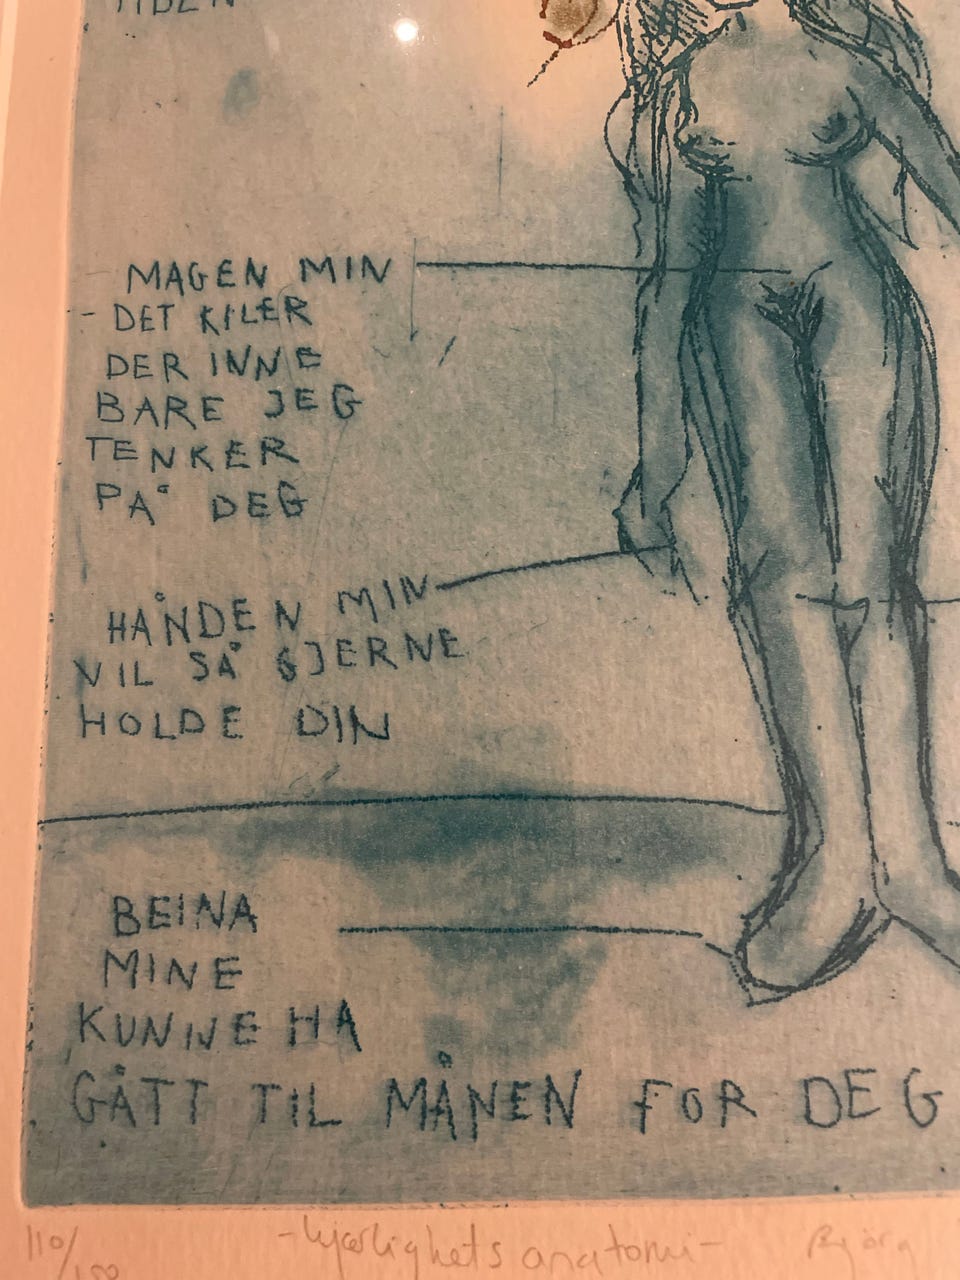 TIDEN
MAGEN MIN
- DET KILER
DER INNE
BARE JEG
TENKER
PÅ DEG
HÅNDEN MIN
VIL SÅ GJERNE
HOLDE DIN
BEINA
MINE
KUNNE HA
GÅTT TIL MÅNEN FOR DEG
110/150 - kjærlighets anatomi - Bjørg